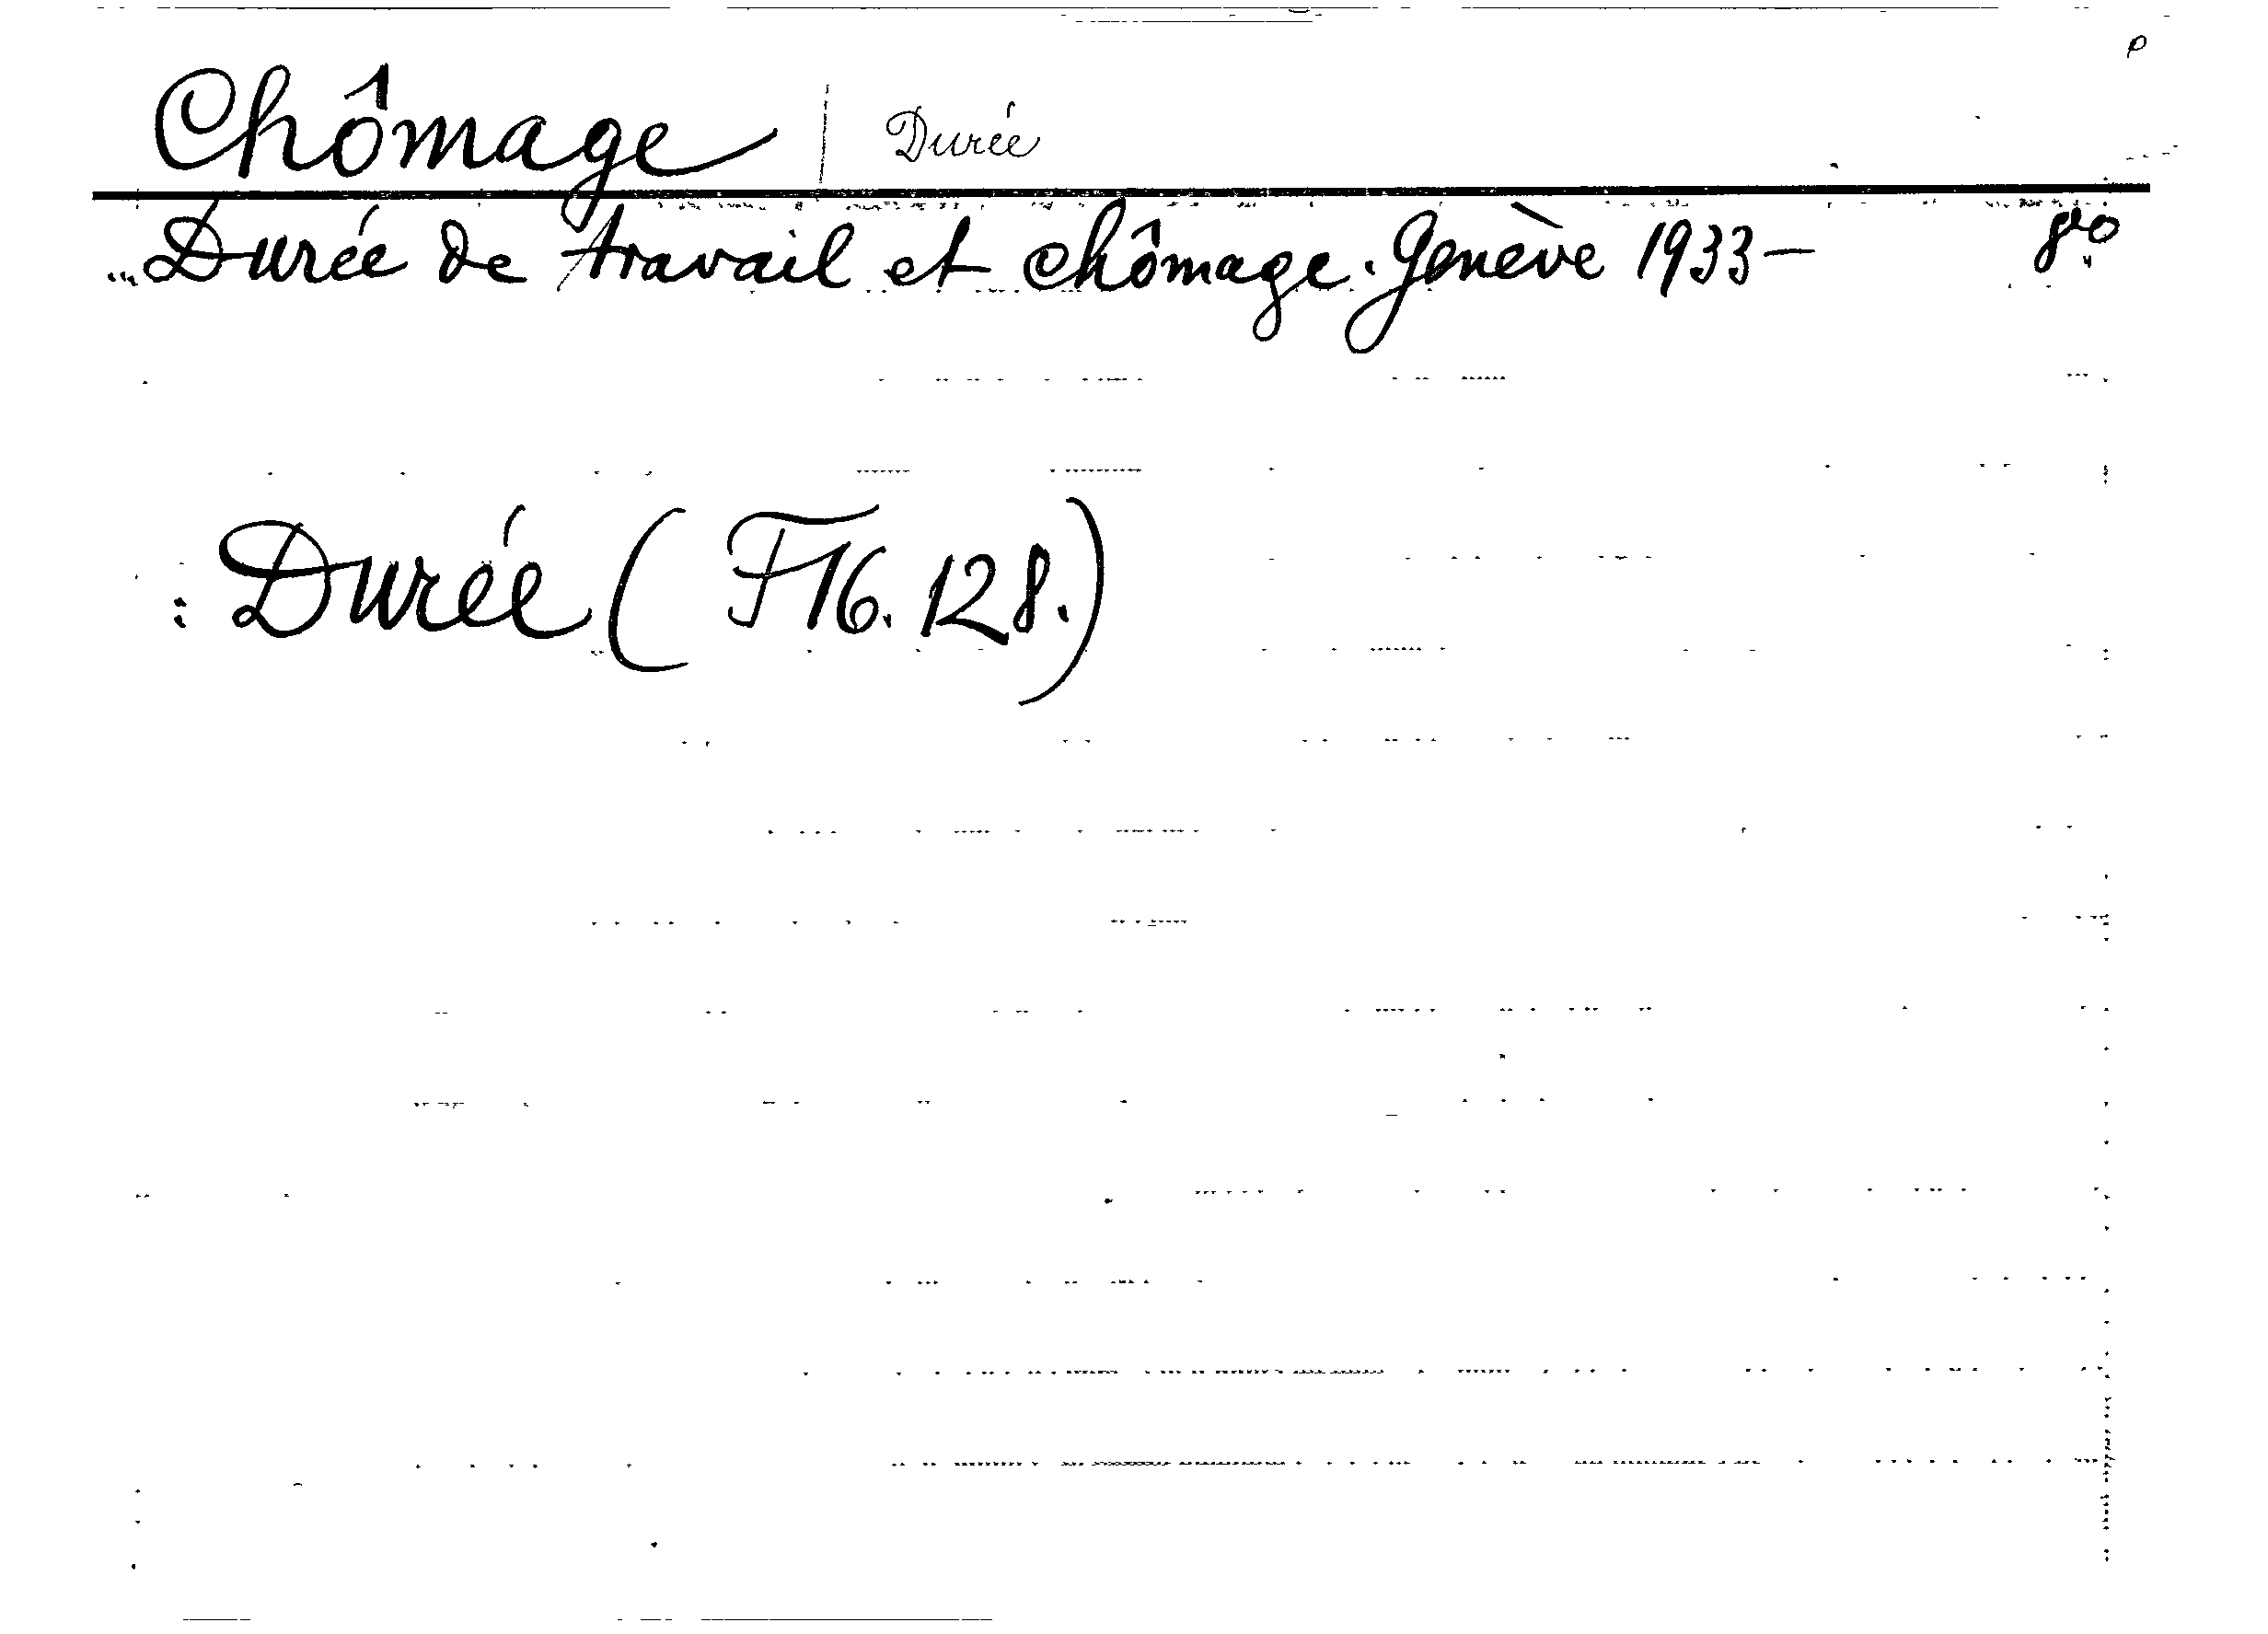 Chômage | Durée
Durée de travail et chômage. Genève 1933— 8vo
: Durée ( F16. 128. )